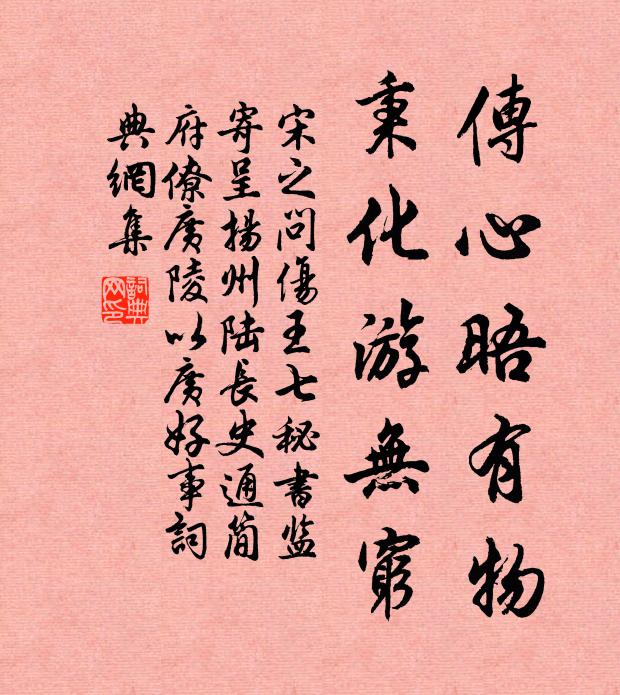 傳心晤有物
秉化游無窮
宋之问傷王七秘書监
寄呈揚州陆長史通简
府僚廣陵以廣好事詞
典網集
詞典
网印